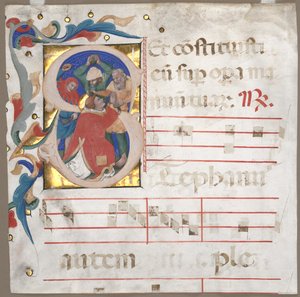 Et constituisti
eū sup opera ma
nuum tuar. ℟.
Stephanus
autem ple